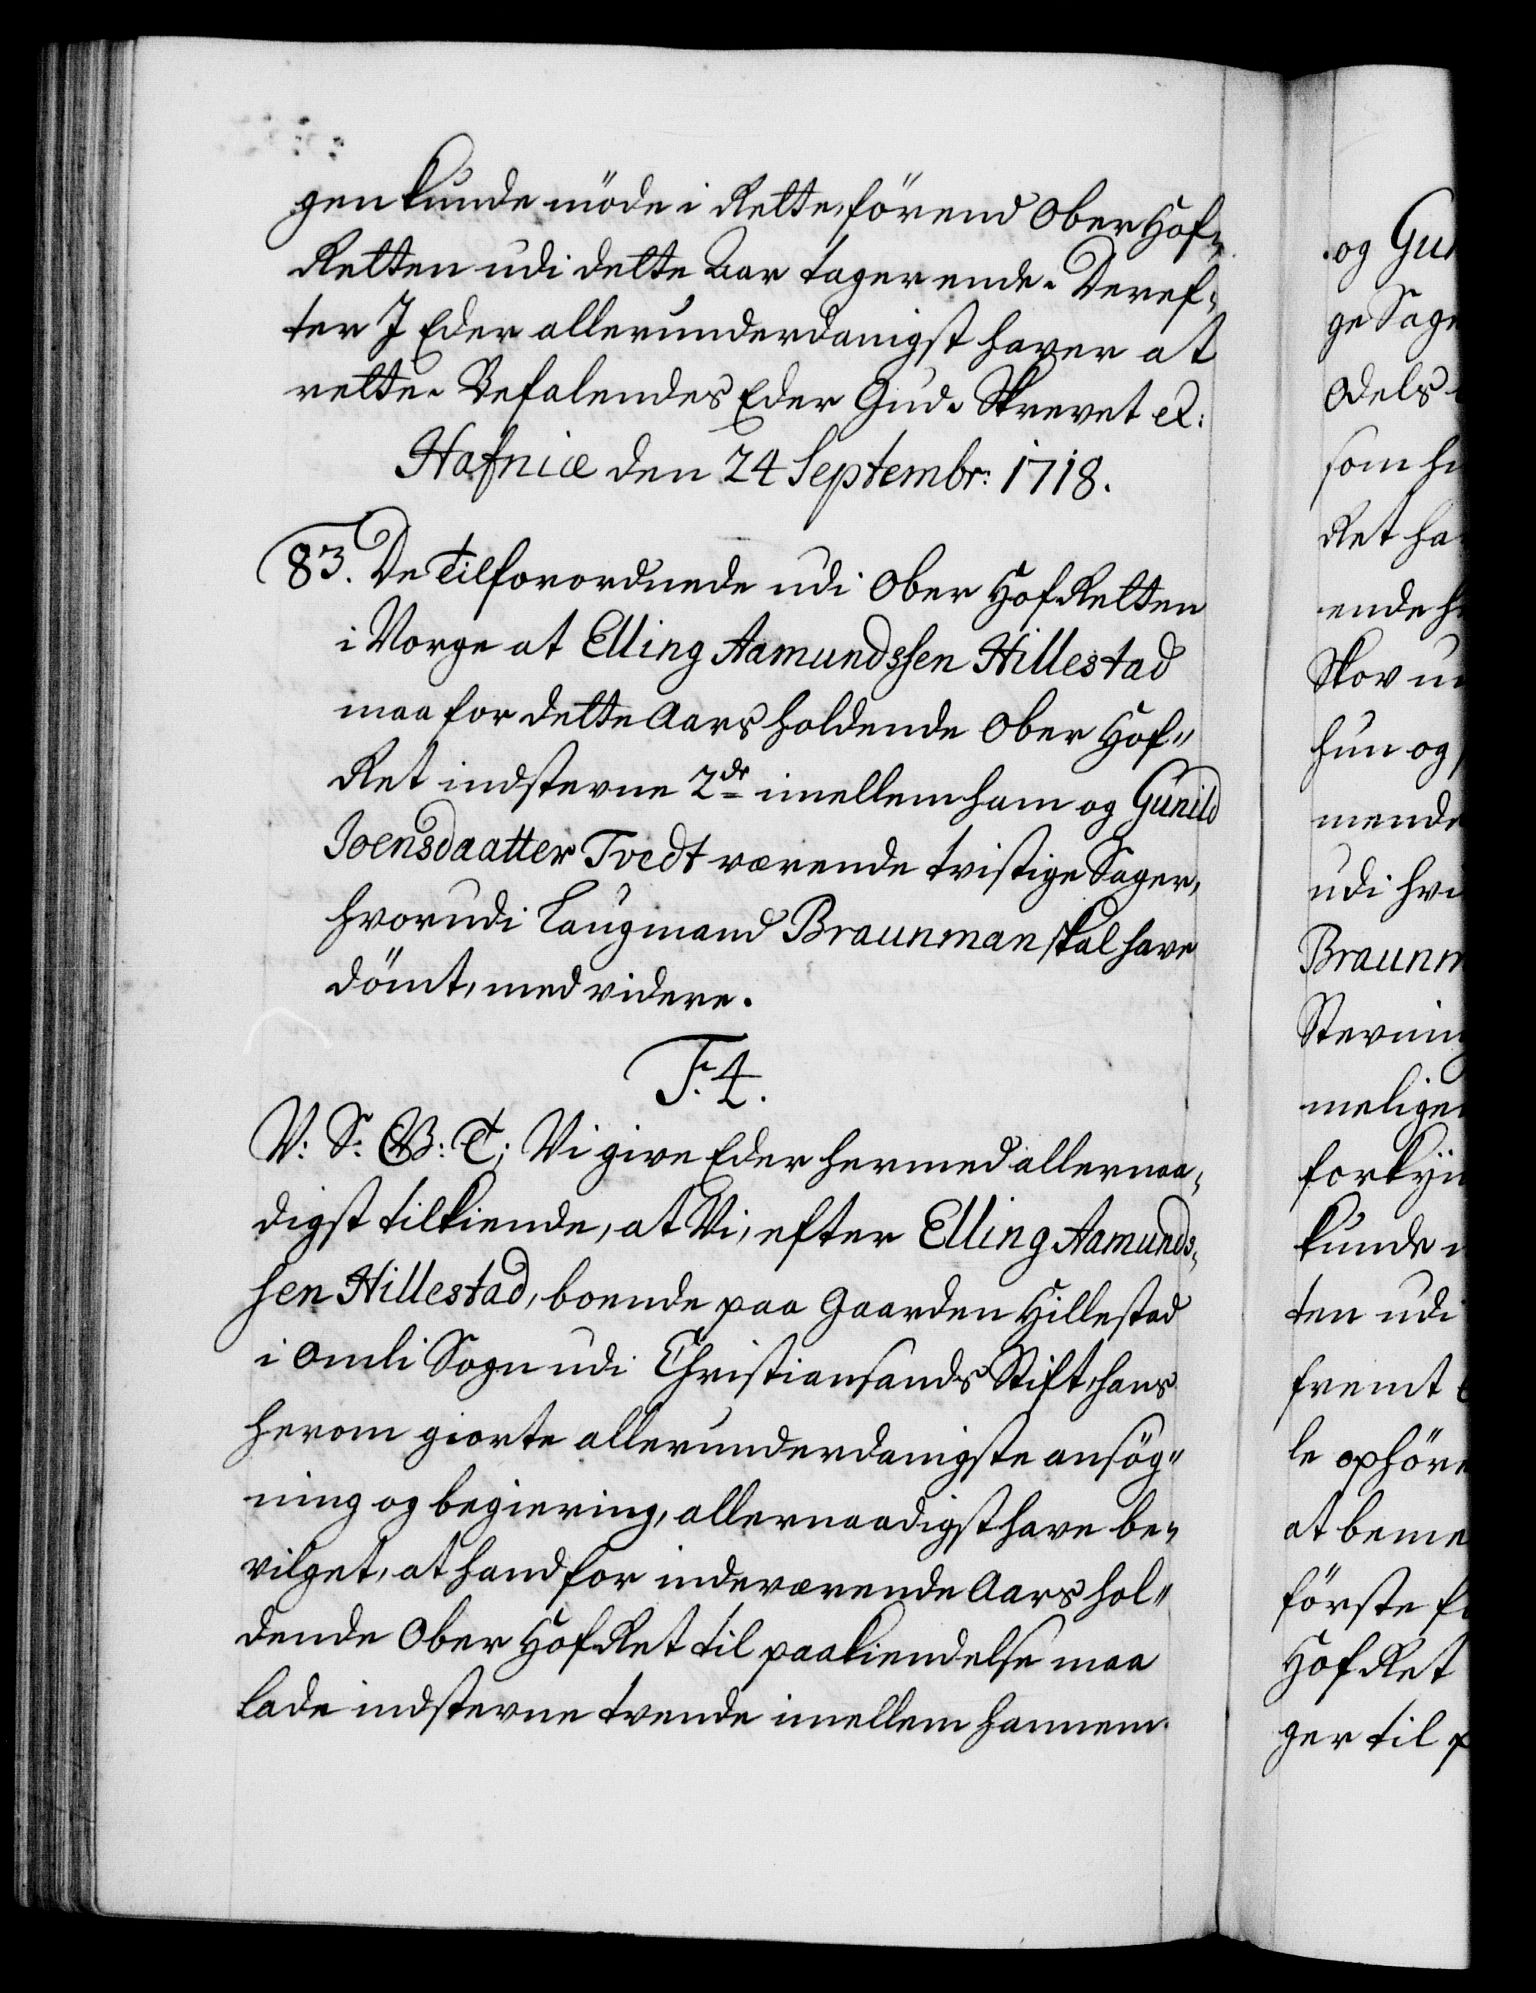 gen kunde möde i Rette, förend Ober Hof-
Retten udi dette Aar tager ende. Deref-
ter I Eder allerunderdanigst haver at
rette. Befalendes Eder Gud. Skrevet &:
Hafniæ den 24 Septembr: 1718.
83. De Tilforordnede udi Ober Hof Retten
i Norge at Elling Aamundssen Hillestad
maa for dette Aars holdende Ober Hof-
Ret indstevne 2de imellem ham og Gunild
Joensdaatter Tvedt værende tvistige Sager,
hvorudi Laugmand Braunman skal have
dömt, med videre.
F. 4.
V: S: G B: T: Vi give Eder hermed allernaa-
digst tilkiende, at Vi, efter Elling Aamunds-
sen Hillestad, boende paa Gaarden Hillestad
i Omli Sogn udi Christiansands Stift, hans
herom giorte allerunderdanigste ansög-
ning og begiering, allernaadigst have be-
vilget, at hand for indeværende Aars hol-
dende Ober Hof Ret til paakiendelse maa
lade indstevne tvende imellem hannem
og Gun
ge Sage
Odels
som h
Ret ha
ende h
Skov u
hun og
mende
udi hv
Braunm
Stevning
meligen
forkyn
kunde
ten udi
fremt
le ophöre
at beme
förste f
Hof Ret
ger til p